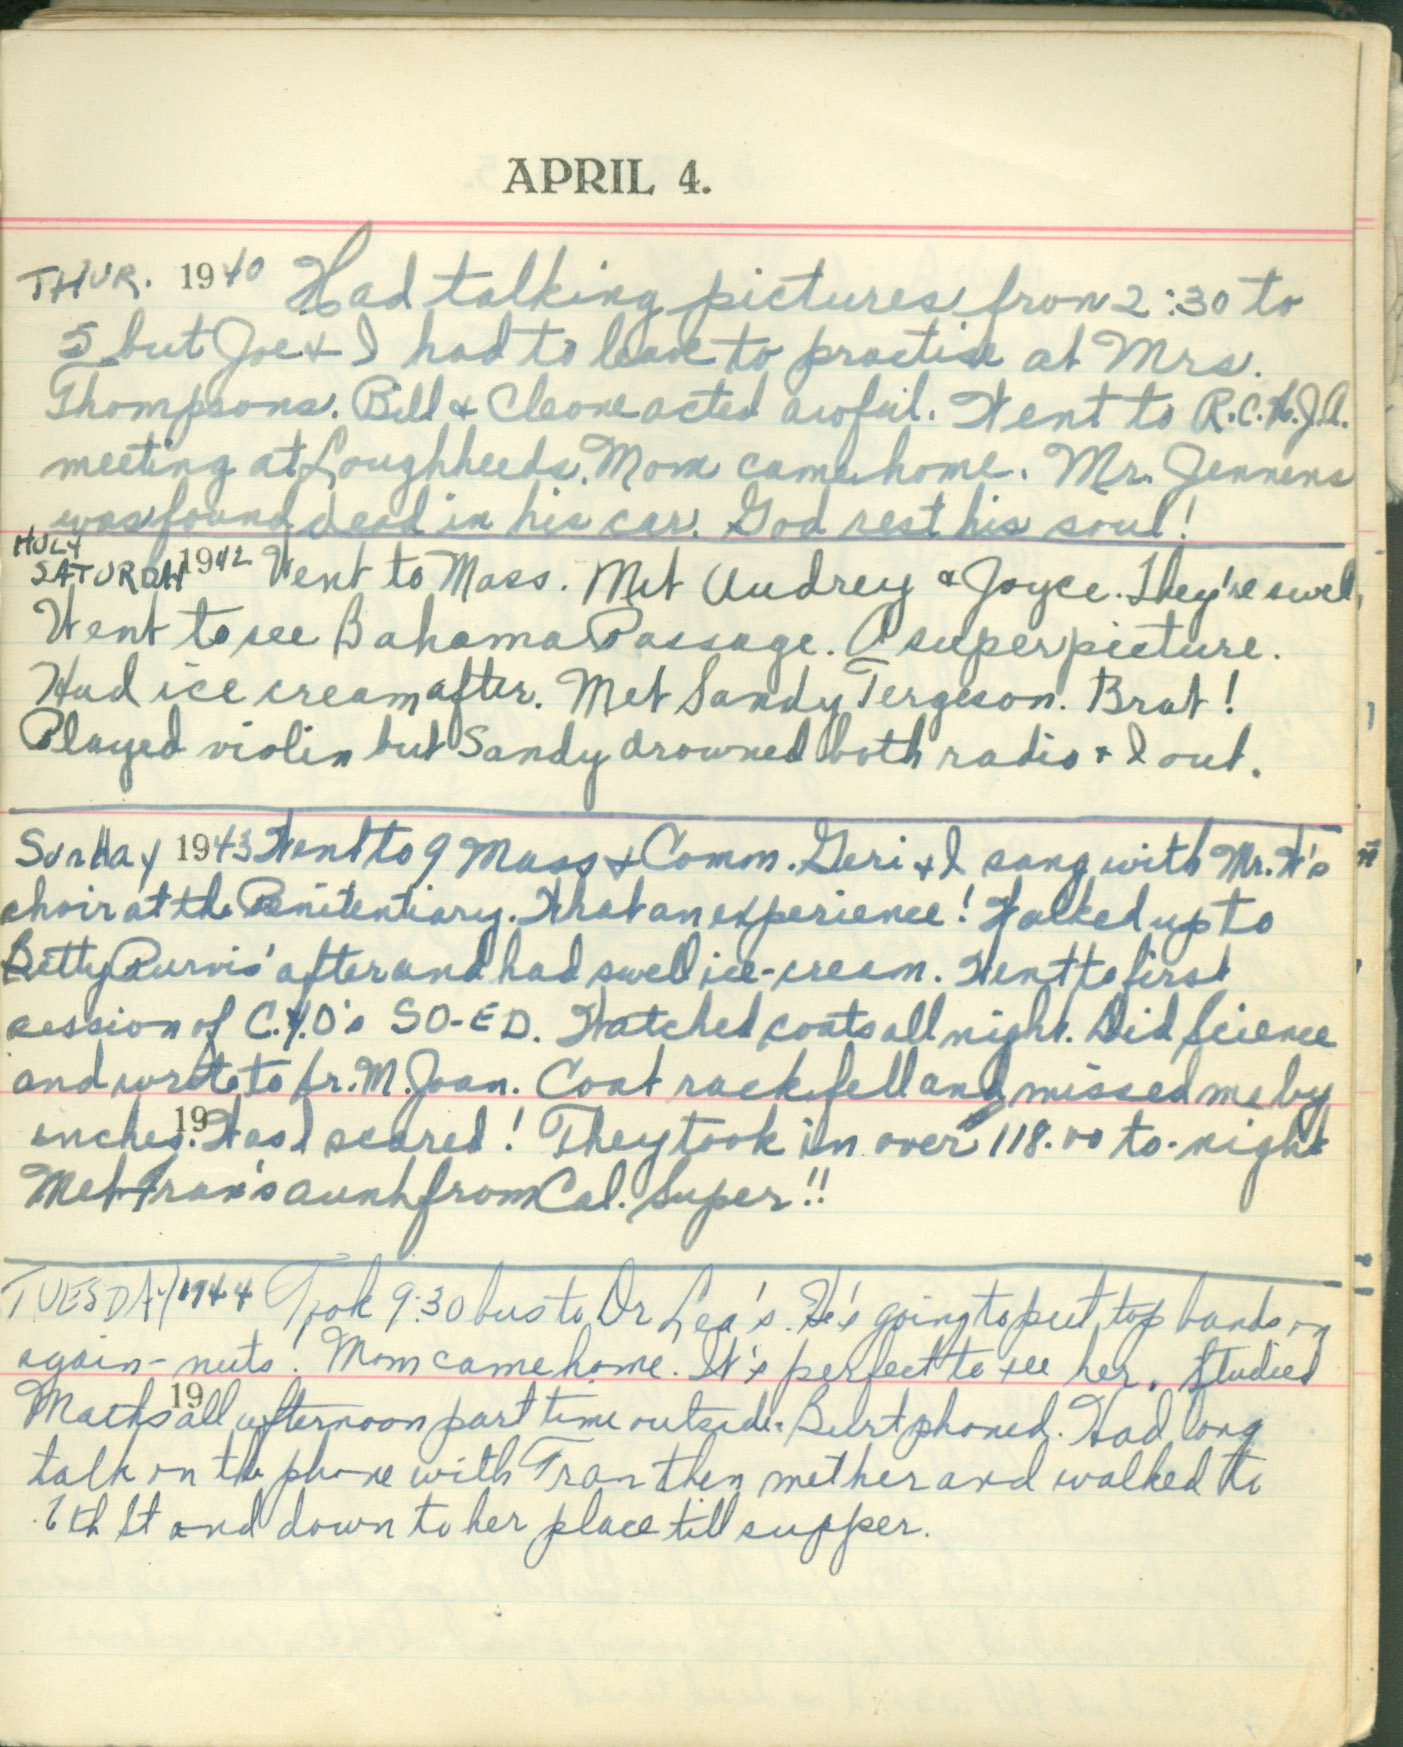 APRIL 4.
THUR. 1940 Had talking pictures from 2:30 to
5 but Joe & I had to leave to practise at Mrs.
Thompsons. Bill & Cleone acted awful. Went to R.C.H.J.A.
meeting at Loughheeds. Mom came home. Mr. Jennens
was found dead in his car. God rest his soul!
HOLY
SATURDAY 1942 Went to Mass. Met Audrey & Joyce. They're swell.
Went to see Bahama Passage. A super picture.
Had ice cream after. Met Sandy Tergeson. Brat!
Played violin but Sandy drowned both radio & I out.
Sunday 1943 Went to 9 Mass & Comm. Geri & I sang with Mr. W's
choir at the Penitentiary. What an experience! Walked up to
Betty Purvis' after and had swell ice-cream. Went to first
session of C.Y.O's SO-ED. Watched coats all night. Did science
and wrote to Sr. M. Joan. Coat rack fell and missed me by
19
inches. Was I scared! They took in over 118.00 to-night
Met Fran's aunt from Cal. Super!!
TUESDAY 1944 Took 9:30 bus to Dr Lea's. He's going to put top bands on
again - nuts! Mom came home. It's perfect to see her. Studied
19
Maths all afternoon part time outside. Burt phoned. Had long
talk on the phone with Fran then met her and walked to
6th St and down to her place till supper.